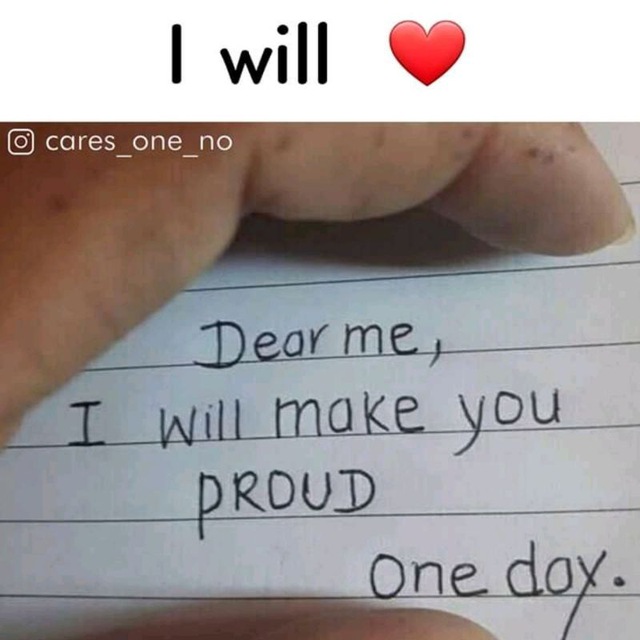 I will ❤️
cares_one_no
Dear me,
I will make you
PROUD
one day.